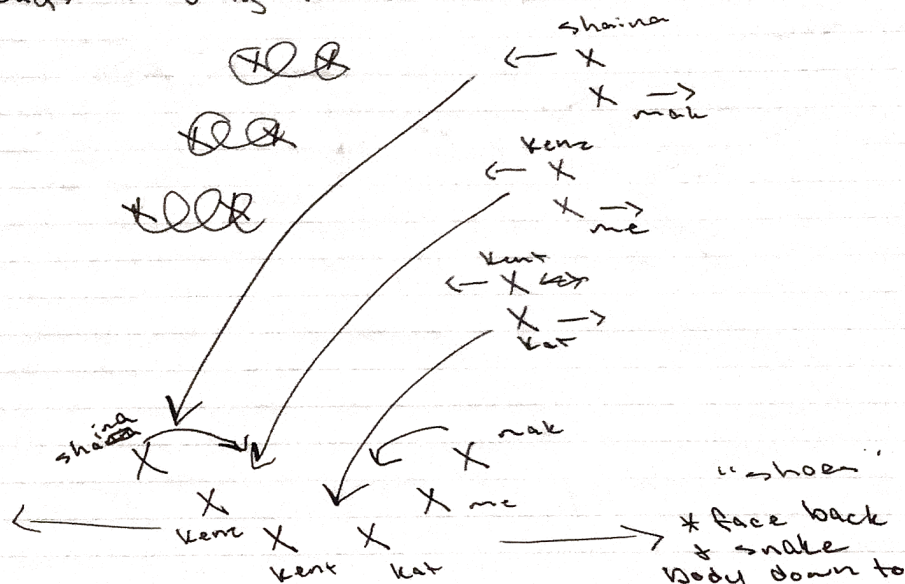 shaina
← X
X →
mak
kenz
← X
X →
me
kent
← X
X →
kat
shaina
X
X mak
X
kenz
X me
X
kent
X
kat
"shoes"
* face back
& snake
body down to